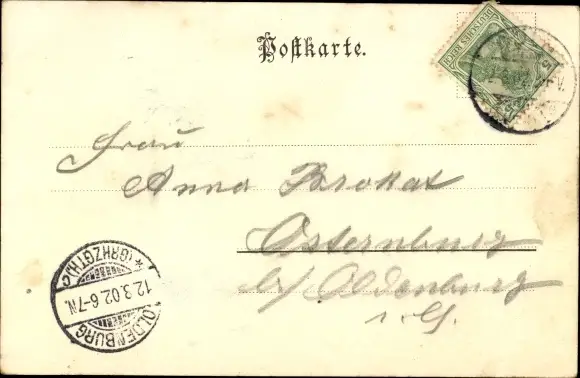 Postkarte.
DEUTSCHES REICH
Frau
Anna Brokat
Osternburg
b/ Oldenburg
i. G.
OLDENBURG
12.3.02.6-7N.
*(GRHZGTH.)c